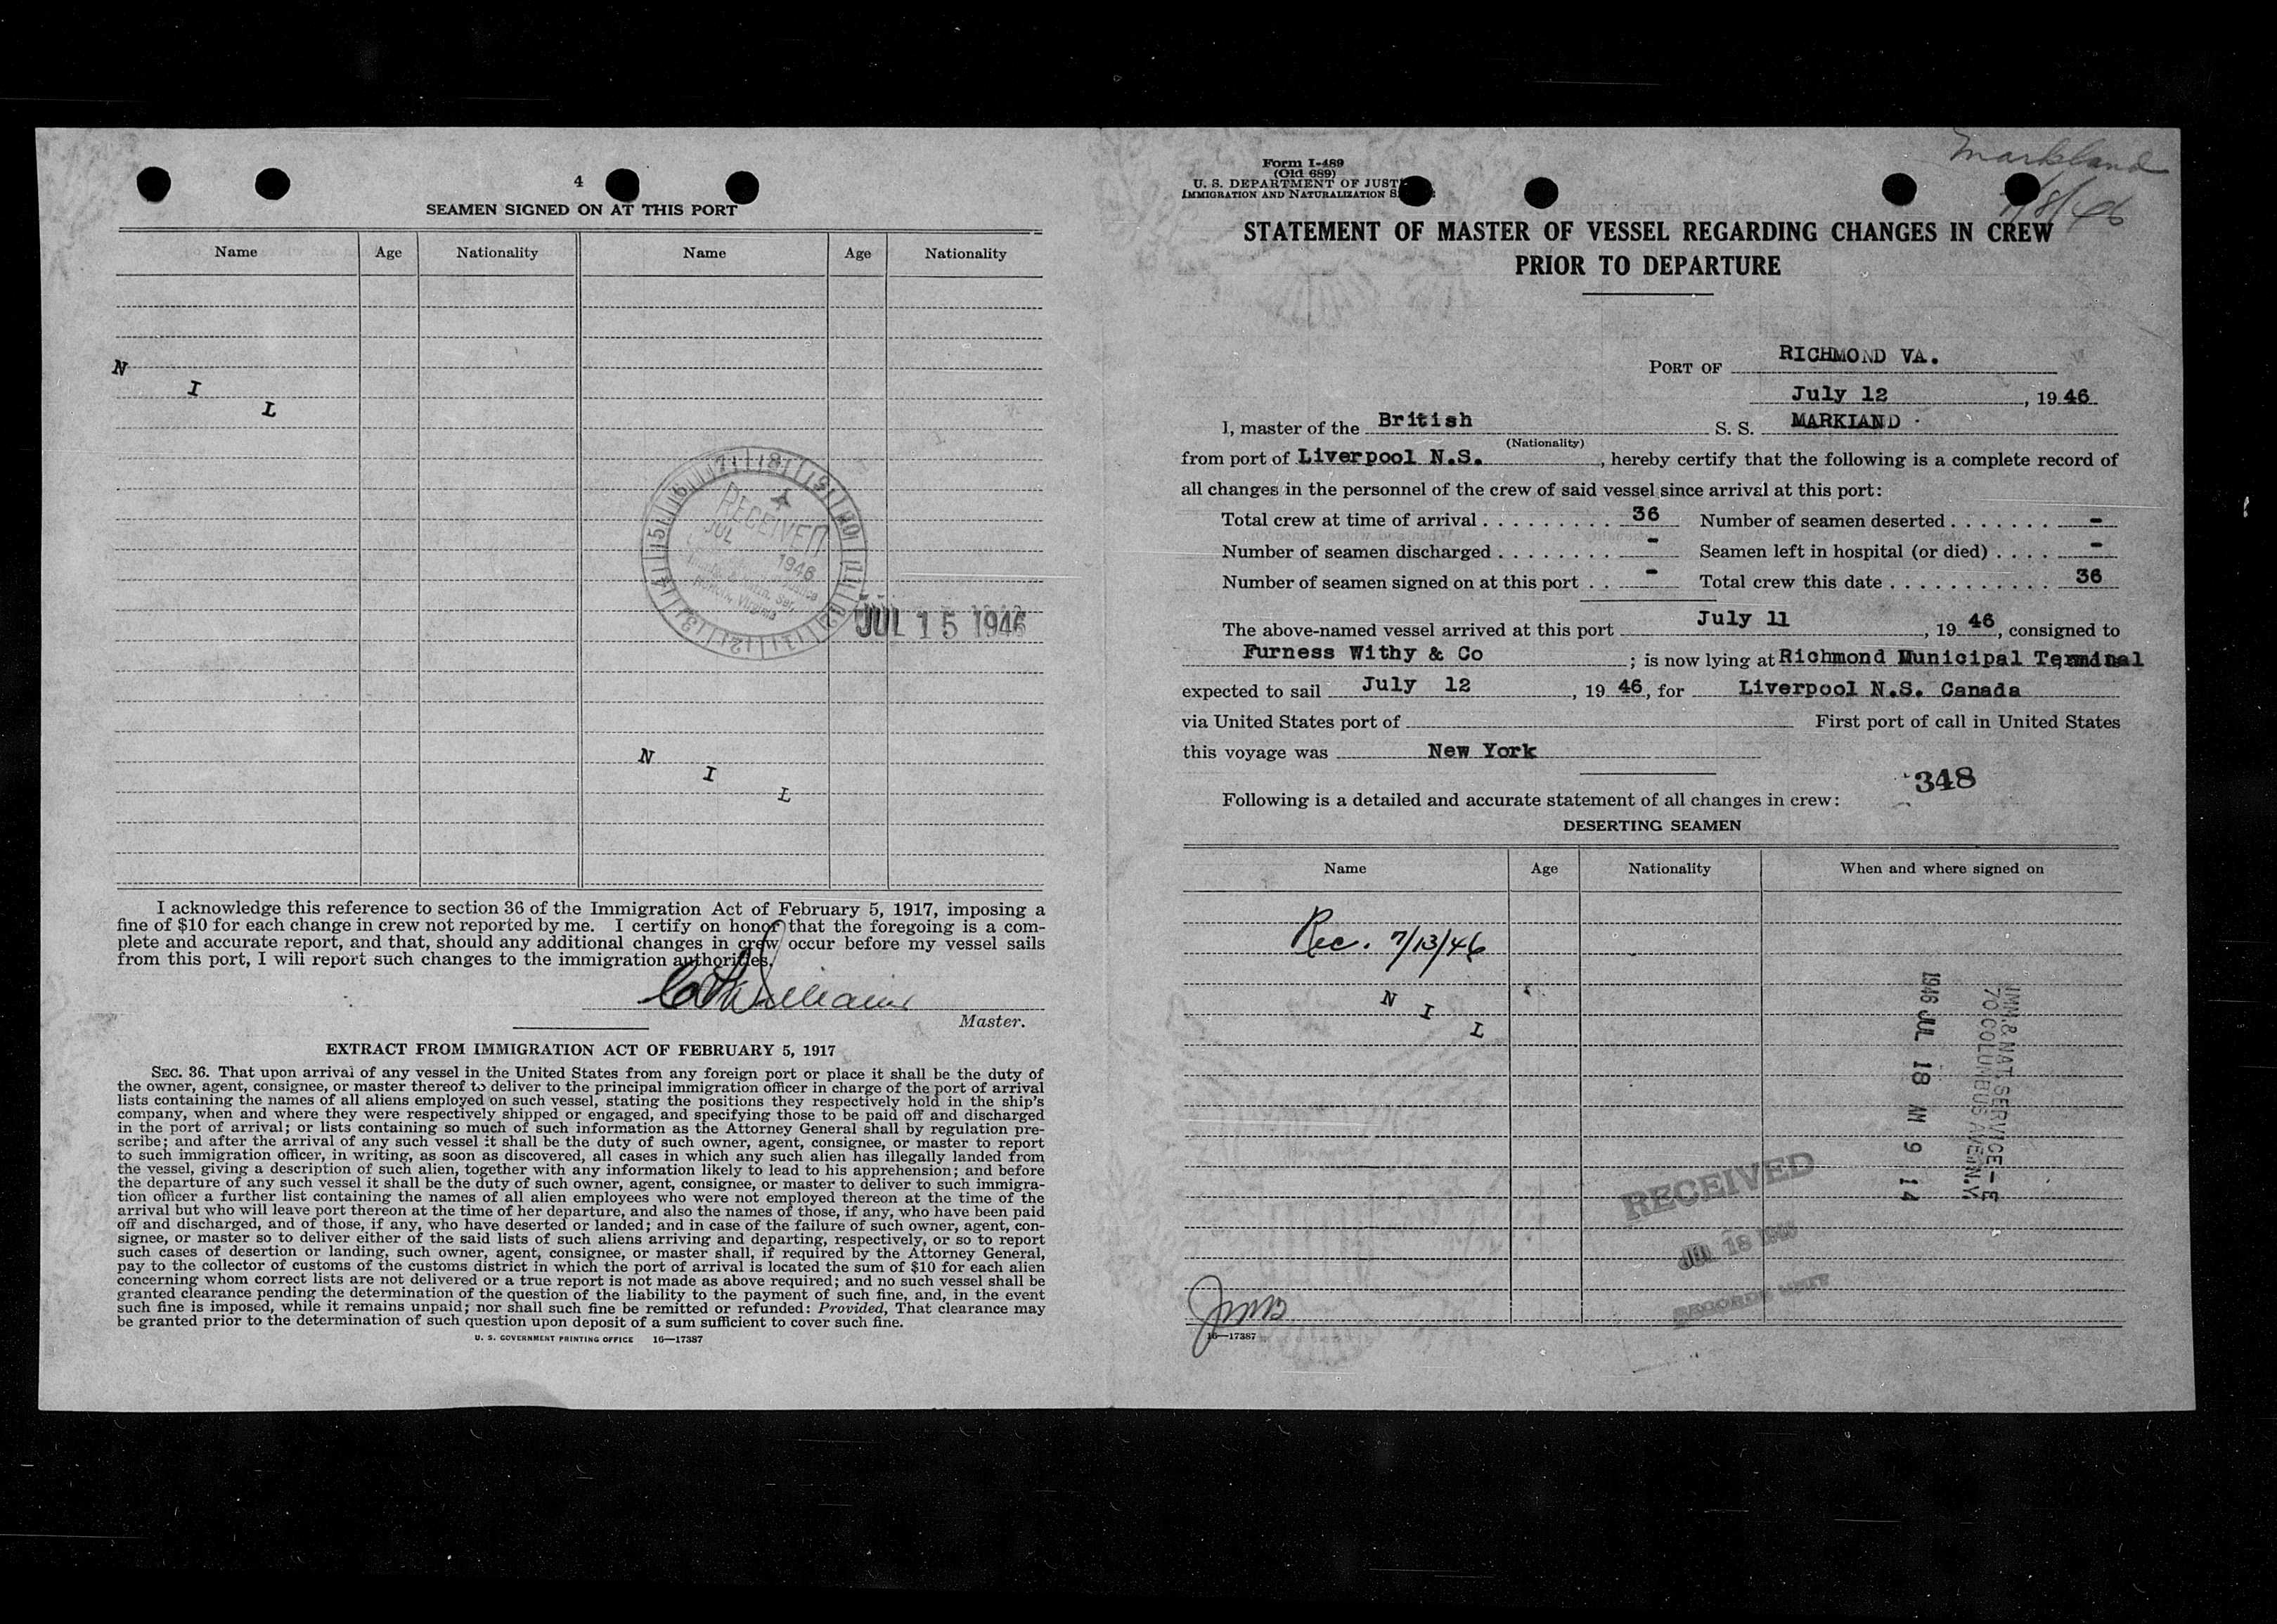 4
SEAMEN SIGNED ON AT THIS PORT
Name Age Nationality Name Age Nationality
N
I
L
RECEIVED
JUL
1946
JUL 15 1946
N
I
L
I acknowledge this reference to section 36 of the Immigration Act of February 5, 1917, imposing a
fine of $10 for each change in crew not reported by me. I certify on honor that the foregoing is a com-
plete and accurate report, and that, should any additional changes in crew occur before my vessel sails
from this port, I will report such changes to the immigration authorities.
Williams
Master.
EXTRACT FROM IMMIGRATION ACT OF FEBRUARY 5, 1917
SEC. 36. That upon arrival of any vessel in the United States from any foreign port or place it shall be the duty of
the owner, agent, consignee, or master thereof to deliver to the principal immigration officer in charge of the port of arrival
lists containing the names of all aliens employed on such vessel, stating the positions they respectively hold in the ship's
company, when and where they were respectively shipped or engaged, and specifying those to be paid off and discharged
in the port of arrival; or lists containing so much of such information as the Attorney General shall by regulation pre-
scribe; and after the arrival of any such vessel it shall be the duty of such owner, agent, consignee, or master to report
to such immigration officer, in writing, as soon as discovered, all cases in which any such alien has illegally landed from
the vessel, giving a description of such alien, together with any information likely to lead to his apprehension; and before
the departure of any such vessel it shall be the duty of such owner, agent, consignee, or master to deliver to such immigra-
tion officer a further list containing the names of all alien employees who were not employed thereon at the time of the
arrival but who will leave port thereon at the time of her departure, and also the names of those, if any, who have been paid
off and discharged, and of those, if any, who have deserted or landed; and in case of the failure of such owner, agent, con-
signee, or master so to deliver either of the said lists of such aliens arriving and departing, respectively, or so to report
such cases of desertion or landing, such owner, agent, consignee, or master shall, if required by the Attorney General,
pay to the collector of customs of the customs district in which the port of arrival is located the sum of $10 for each alien
concerning whom correct lists are not delivered or a true report is not made as above required; and no such vessel shall be
granted clearance pending the determination of the question of the liability to the payment of such fine, and, in the event
such fine is imposed, while it remains unpaid; nor shall such fine be remitted or refunded: Provided, That clearance may
be granted prior to the determination of such question upon deposit of a sum sufficient to cover such fine.
U. S. GOVERNMENT PRINTING OFFICE 16—17387
Markland
Form I-489
(Old 689)
U. S. DEPARTMENT OF JUST
IMMIGRATION AND NATURALIZATION S
STATEMENT OF MASTER OF VESSEL REGARDING CHANGES IN CREW
PRIOR TO DEPARTURE
PORT OF RICHMOND VA.
July 12, 1946
I, master of the British S. S. MARKIAND
(Nationality)
from port of Liverpool N.S., hereby certify that the following is a complete record of
all changes in the personnel of the crew of said vessel since arrival at this port:
Total crew at time of arrival . . . . . . . . . 36 Number of seamen deserted . . . . . . . -
Number of seamen discharged . . . . . . . . - Seamen left in hospital (or died) . . . . -
Number of seamen signed on at this port . . - Total crew this date . . . . . . . . . . . 36
The above-named vessel arrived at this port July 11, 1946, consigned to
Furness Withy & Co; is now lying at Richmond Municipal Terminal
expected to sail July 12, 1946, for Liverpool N.S. Canada
via United States port of First port of call in United States
this voyage was New York
348
Following is a detailed and accurate statement of all changes in crew:
DESERTING SEAMEN
Name Age Nationality When and where signed on
Rec. 7/13/46
N
I
L
1946 JUL 18 AM 9 14
IMM. & NAT. SERVICE—E
70 COLUMBUS AVE. N.Y.
RECEIVED
JUL 18 1946
RECORDS UNIT
16—17387